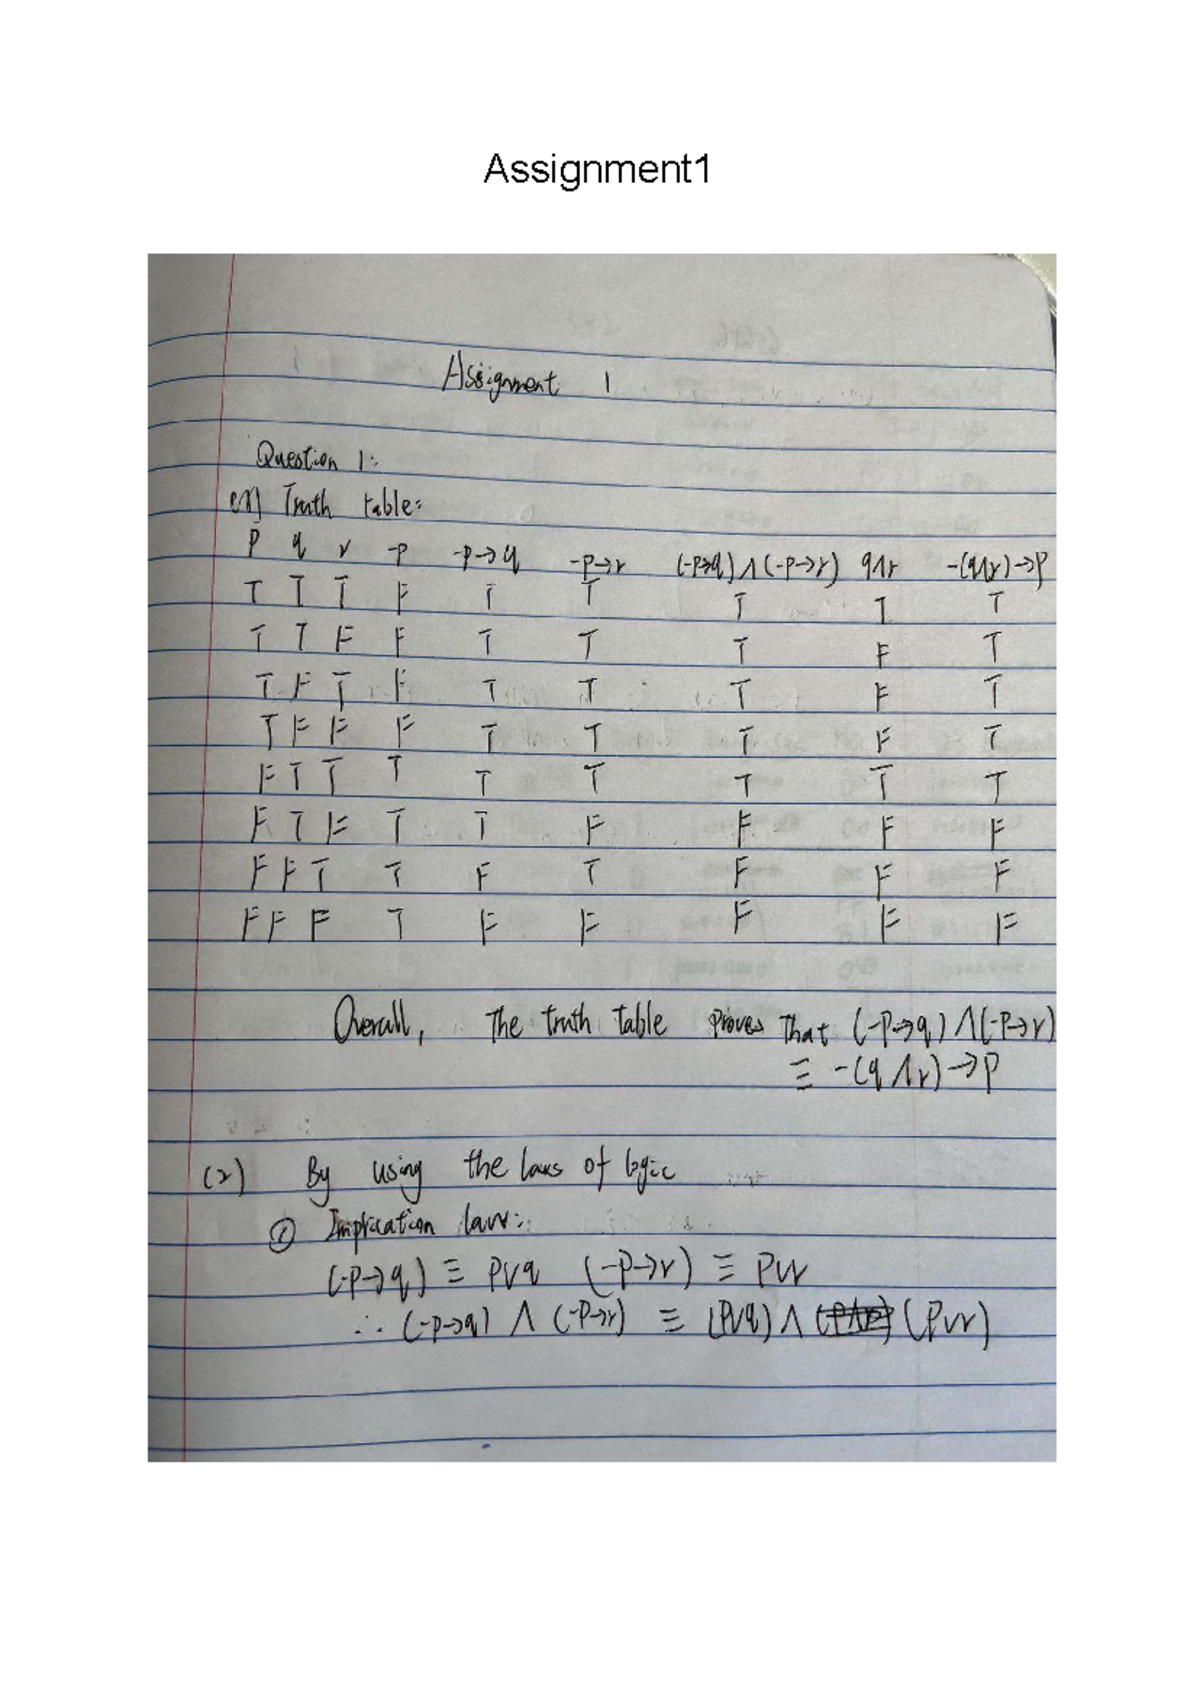 Assignment1
Assignment 1
Question 1:
(1) Truth table:
P q r -p -p→q -p→r (-p→q)∧(-p→r) q∧r -(q∧r)→P
T T T F T T T T T
T T F F T T T F T
T F T F T T T F T
T F F F T T T F T
F T T T T T T T T
F T F T T F F F F
F F T T F T F F F
F F F T F F F F F
Overall, The truth table proves That (-P→q)∧(-P→r)
≡ -(q∧r)→P
(2) By using the laws of logic
① Implication law:
(-P→q) ≡ P∨q (-P→r) ≡ P∨r
∴ (-p→q) ∧ (-P→r) ≡ (P∨q)∧ (P∨r)